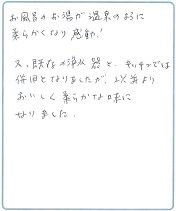 お風呂のお湯が温泉のように
柔らかくなり感動!
又、既存の浄水器と、キッチンでは
併用となりましたが、以前より
おいしく柔らかな味に
なりました。